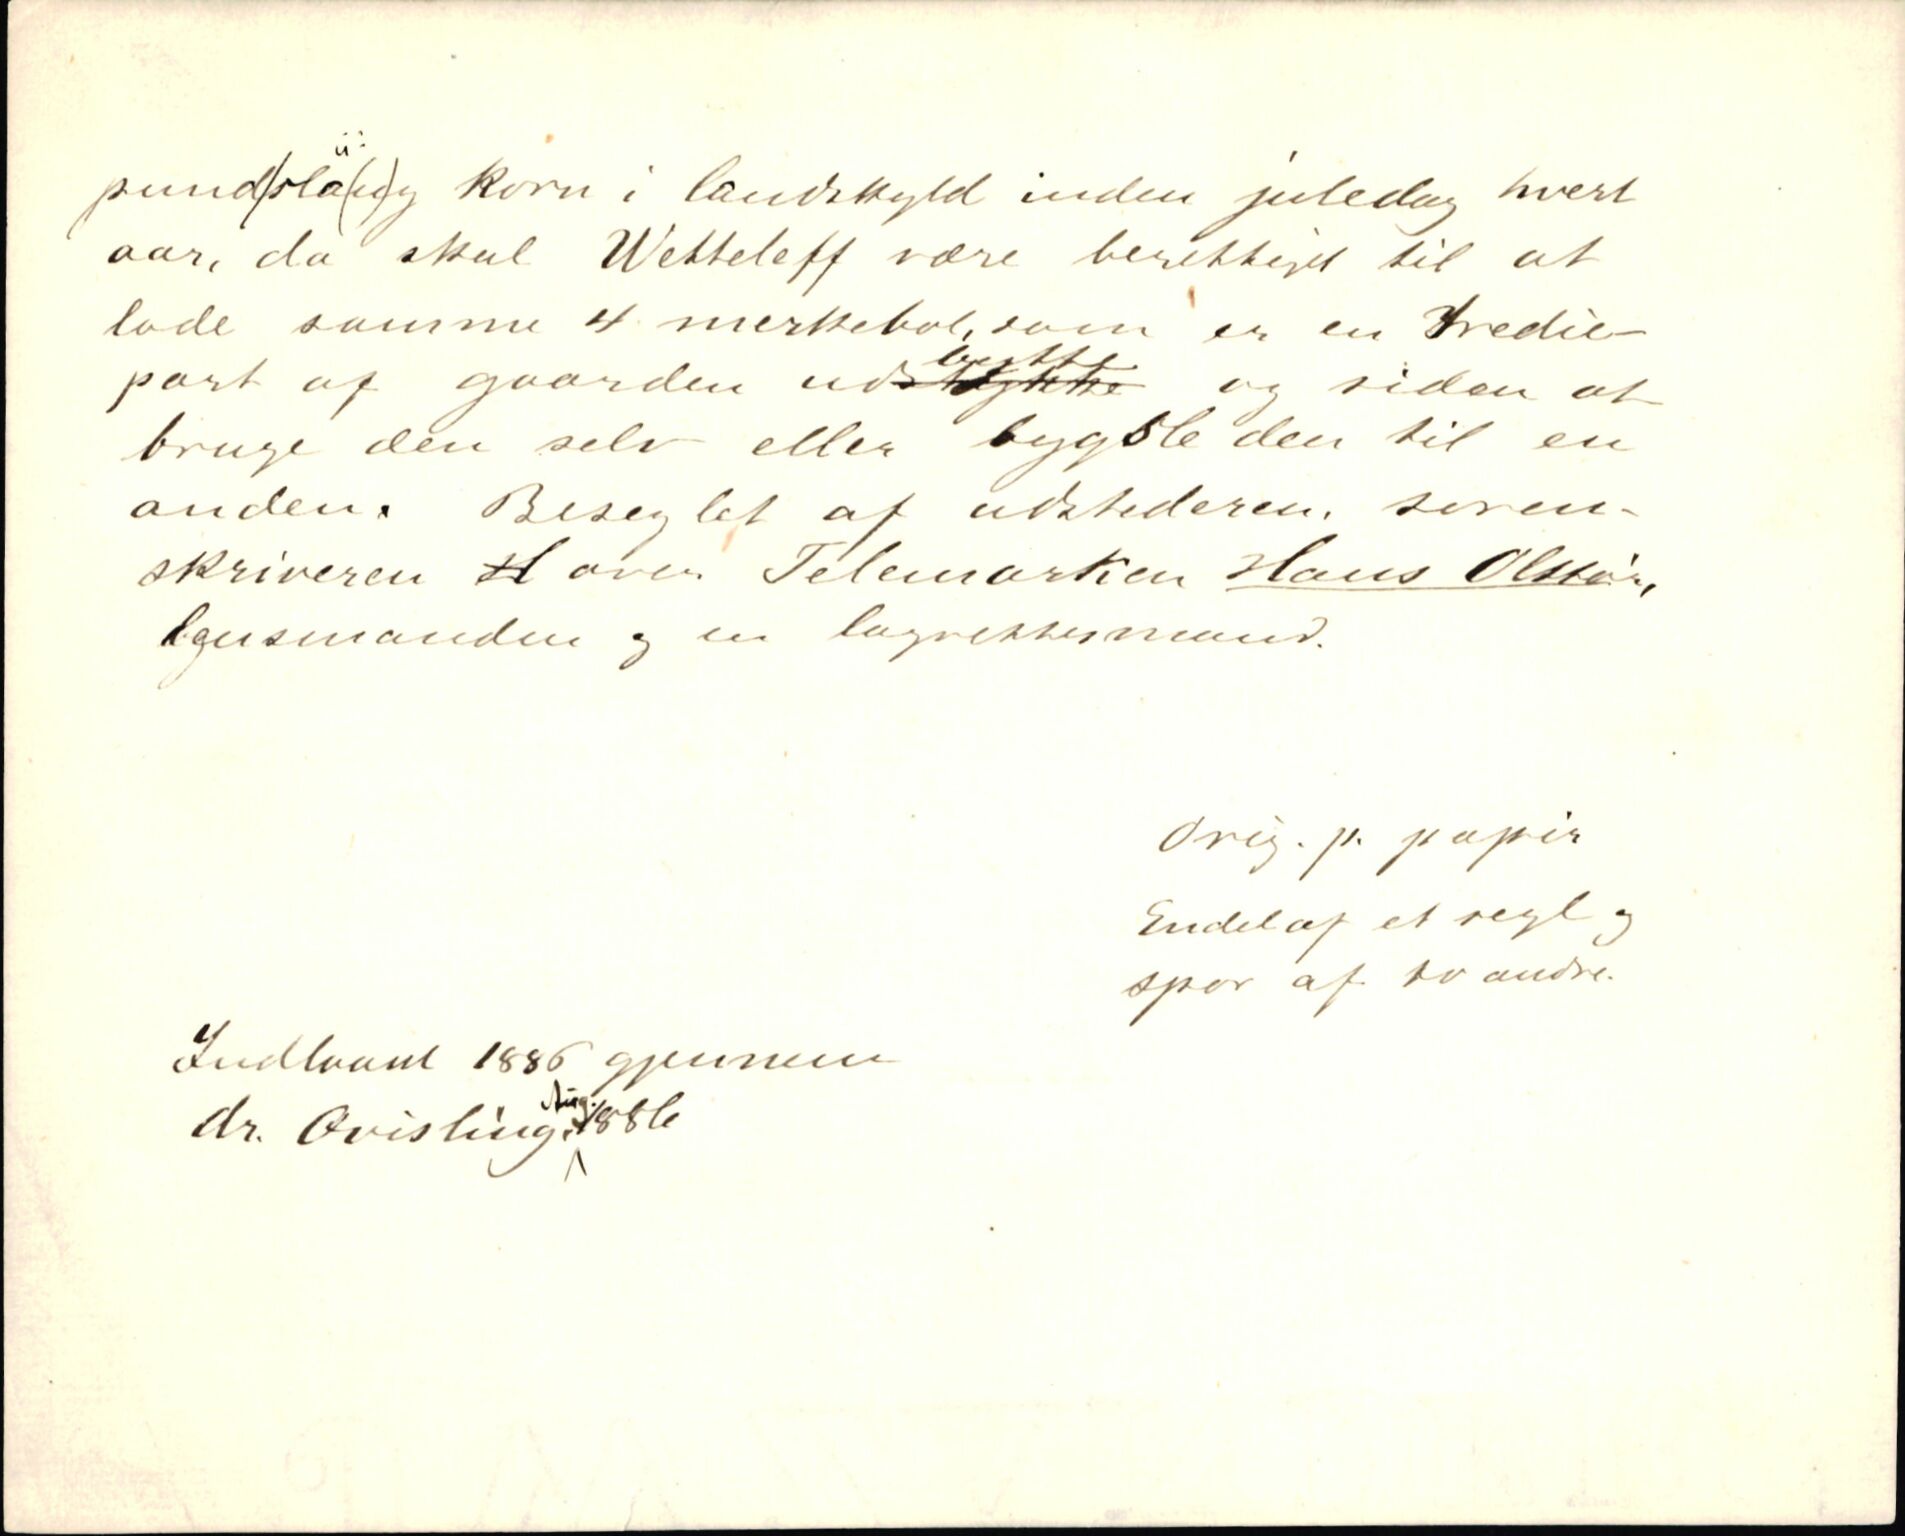 pund(slä(u)g korn i landskyld inden juledag hvert
aar, da skal Wetteleff være berettiget til at
lade samme 4 merkebol, som er en tredie-
part af gaarden udbytte og siden at
bruge den selv eller bygsle den til en
anden. Beseglet af udstederen, soren-
skriveren over Telemarken Hans Olssøn,
lensmanden og en lagrettesmand.
Orig. p. papir
Endel af et segl og
spor af to andre.
Indlaant 1886 gjennem
dr. Qvisling. Aug. 1886